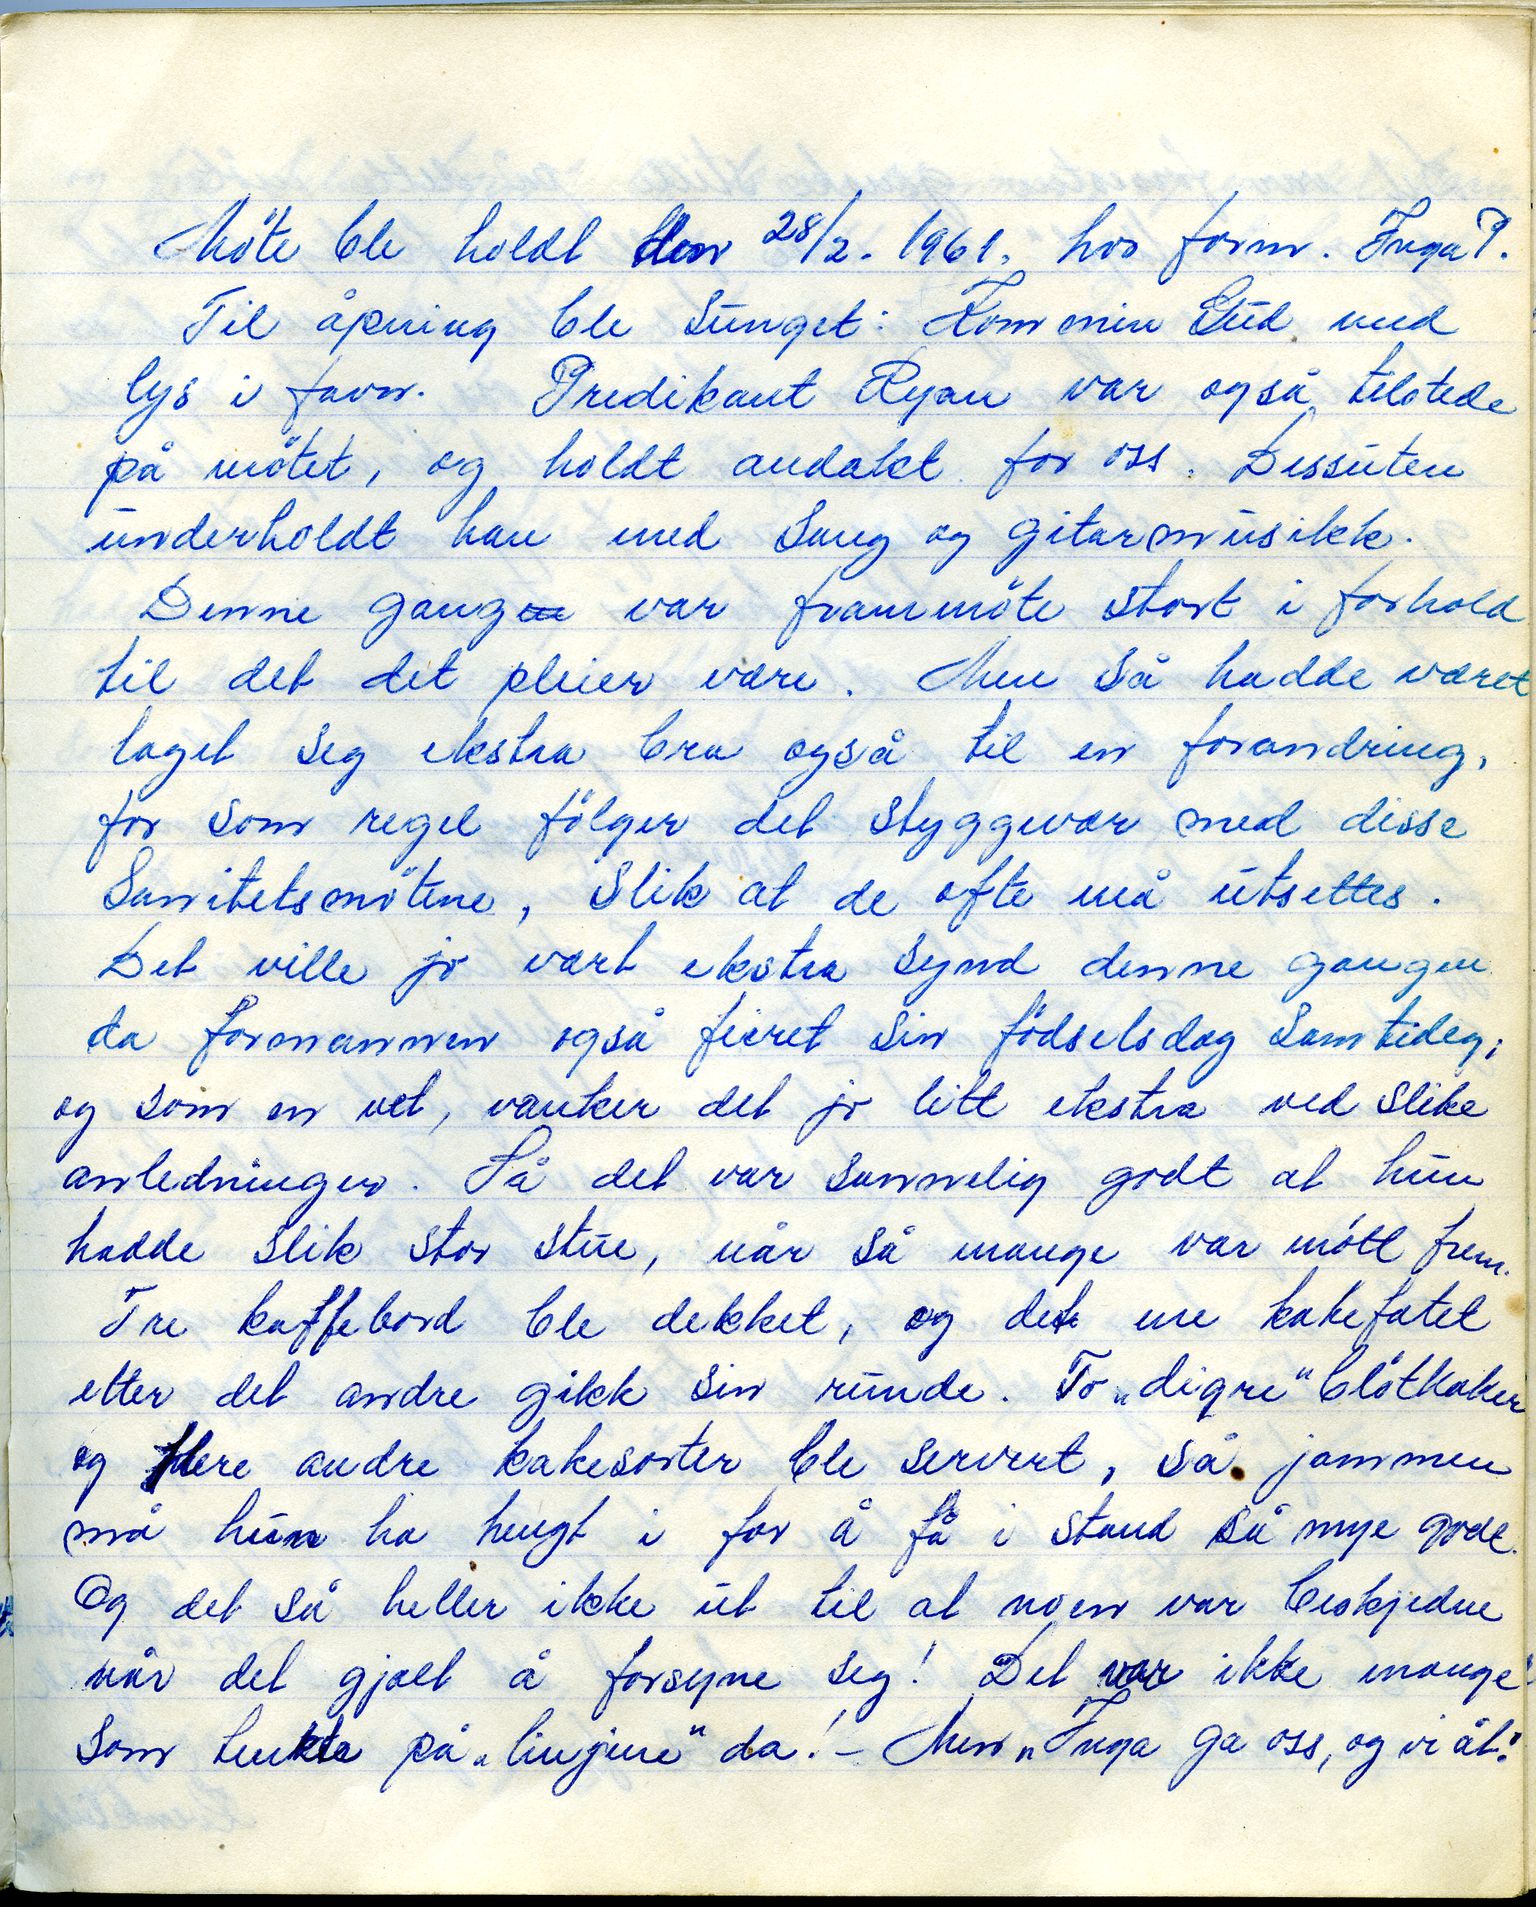 Möte ble holdt den 28/2. 1961. hos form. Inga P.
Til åpning ble sunget: Kom min Gud med
lys i favn. Predikant Ryan var også tilstede
på mötet, og holdt andakt for oss. Dessuten
underholdt han med sang og gitarmusikk.
Denne gang var frammöte stort i forhold
til det det pleier være. Men så hadde været
laget seg ekstra bra også til en forandring,
for som regel fölger det styggevær med disse
Sanitetsmötene, slik at de ofte må utsettes.
Det ville jo vært ekstra synd denne gangen
da formannen også feiret sin födselsdag samtidig;
og som en vet, vanker det jo litt ekstra ved slike
anledninger. Så det var sannelig godt at hun
hadde slik stor stue, når så mange var mött frem.
Tre kaffebord ble dekket, og det ene kakefatet
etter det andre gikk sin runde. To „digre" blötkaker
og flere andre kakesorter ble servert, så jammen
må hun ha hengt i for å få i stand så mye godt.
Og det så heller ikke ut til at noen var beskjedne
når det gjalt å forsyne seg! Det var ikke mange
som tenkte på „linjene" da! – Men „Inga ga oss, og vi åt."